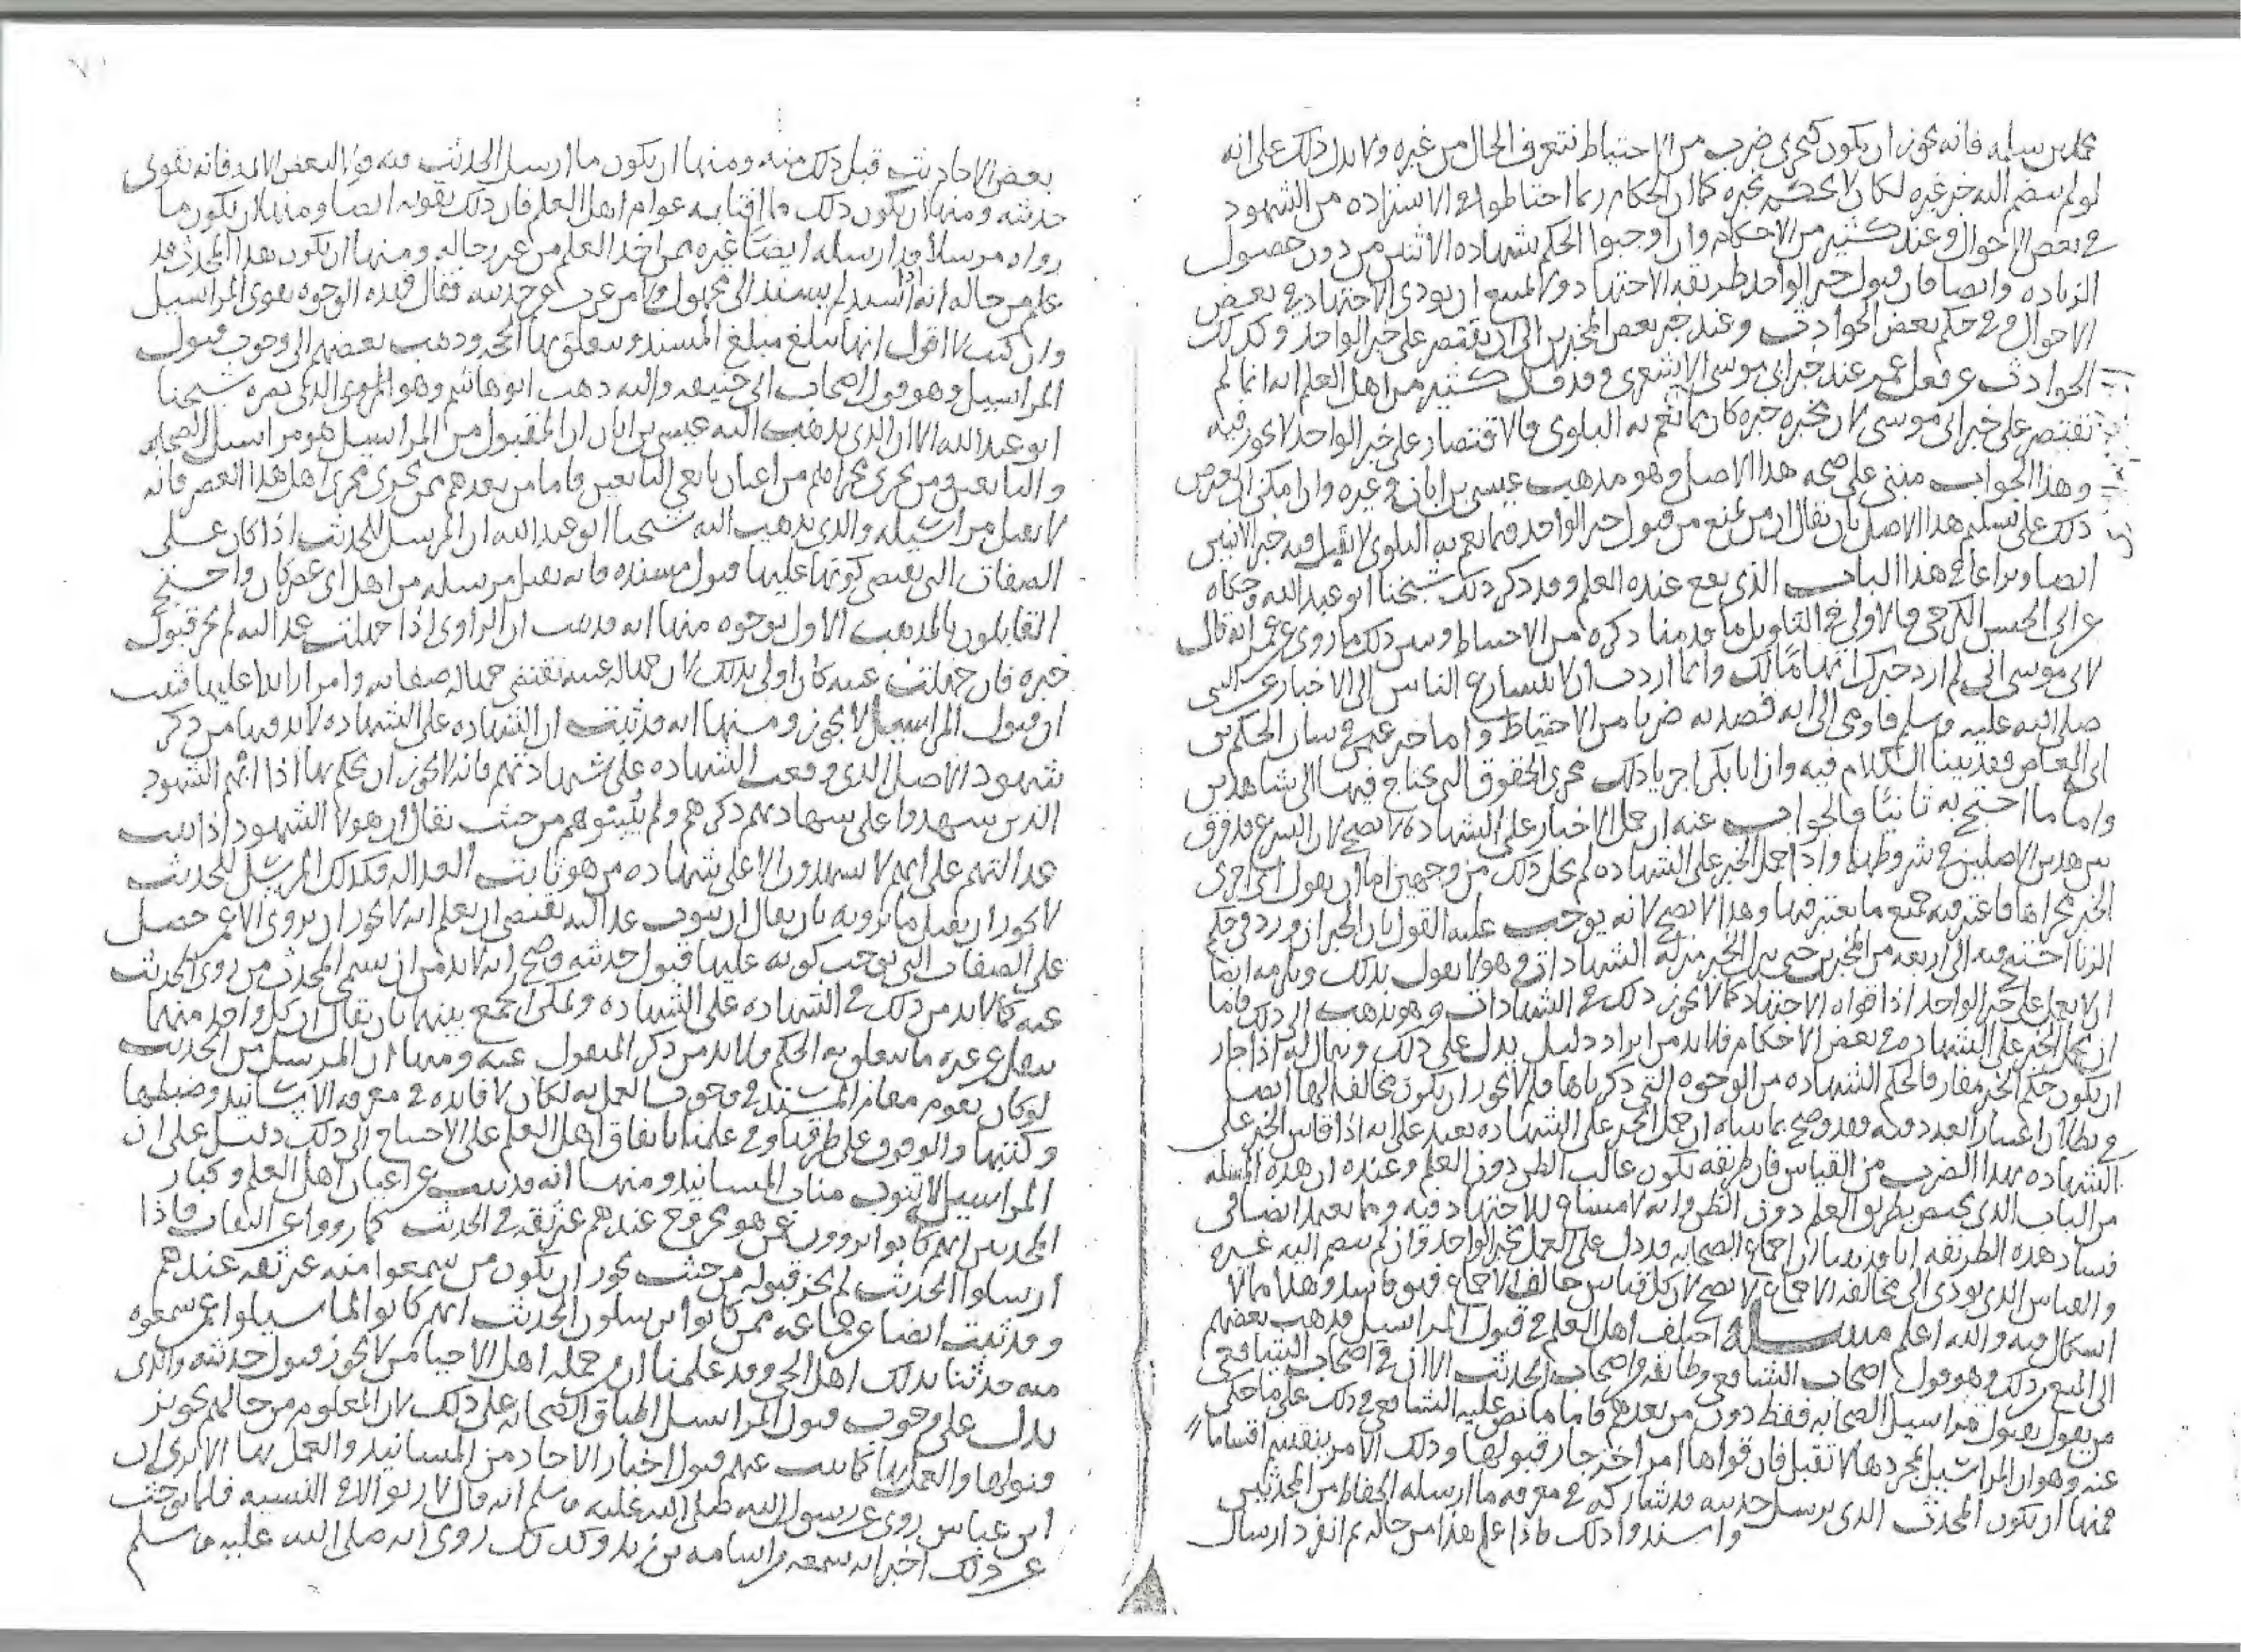 محمد بن سلمه فانه يجوز ان يكون كتحرى ضرب من الاحتياط نتعرف الحال من غيره ولا يدل ذلك على انه
لو لم ينضم اليه خبر غيره لكان لا يحكم بخبره كما ان الحكام ربما احتاطوا في الاستزاده من الشهود
في بعض الاحوال وعند كثير من الاحكام وان اوجبوا الحكم بشهاده الاثنين من دون حصول
الزياده وايضا فان قبول خبر الواحد طريقه الاجتهاد ولا يمتنع ان يودى الاجتهاد في بعض
الاحوال وفي حكم بعض الحوادث وعند خبر بعض المخبرين الى ان يقتصر على خبر الواحد وكذلك
الحوادث عن فعل عمر عند خبر ابى موسى الاشعرى وقد قال كثير من اهل العلم انه انما لم
يقتصر على خبر ابى موسى لان مخبر خبره كان مما تعم به البلوى فالاقتصار على خبر الواحد لا يجوز فيه
وهذا الجواب مبنى على صحه هذا الاصل وهو مذهب عيسى بن ابان وغيره وان امكن
ذلك على تسليم هذا الاصل بان يقال ان من يمنع من قبول خبر الواحد فيما تعم به البلوى لا يقبل فيه خبر الاثنين
ايضا ويراعى في هذا الباب الذى يقع عنده العلم وقد ذكر ذلك شيخنا ابو عبد الله وحكاه
عن ابى الحسن الكرخى فالاولى في التاويل ما قدمنا ذكره من الاحتياط وبين ذلك ما روى عن عمر انه قال
لابى موسى انى لم ارد خبرك اتهاما لك وانما اردت ان لا يتسارع الناس الى الاخبار عن النبى
صلى الله عليه وسلم فاومى الى انه قصد به ضربا من الاحتياط واما خبر عثمن في بيان الحكم بن
ابى العاص فقد بينا الكلام فيه وان ابا بكر اجرى ذلك مجرى الحقوق التى يحتاج فيها الى شاهدين
واما ما احتج به ثانيا فالجواب عنه ان حمل الاخبار على الشهاده لا يصح لان الشرع قد فرق
بين هذين الاصلين في شروطهما واذا حمل الخبر على الشهاده لم يخل ذلك من وجهين اما ان يقول انى اجرى
الخبر مجراها فاعتبر فيه جميع ما يعتبر فيها وهذا لا يصح لانه يوجب عليه القول بان الخبر اذا ورد في حكم
الزنا احتيج فيه الى اربعه من المخبرين حتى ينزل الخبر منزله الشهادات وهو لا يقول بذلك ويلزمه ايضا
الا يعمل على خبر الواحد اذا قواه الاجتهاد كما لا يجوز ذلك في الشهادات وهو يذهب الى ذلك فاما
ان يحمل الخبر على الشهاده في بعض الاحكام فلا بد من ايراد دليل يدل على ذلك ويقال له اذا جاز
ان يكون حكم الخبر مفارقا لحكم الشهاده من الوجوه التى ذكرناها فلم لا يجوز ان يكون مخالفا لها ايضا
في اعتبار العدد فيه فقد وضح بما بيناه ان حمل الخبر على الشهاده بعيد على انه اذا قاس الخبر على
الشهاده بهذا الضرب من القياس فان طريقه يكون غالب الظن دون العلم وعنده ان هذه المسله
من الباب الذى يختص بطريق العلم دون الظن وانه لا مساغ للاجتهاد فيه ومما يعتمد ايضا في
فساد هذه الطريقه انا قد بينا ان اجماع الصحابه قد دل على العمل بخبر الواحد وان لم ينضم اليه غيره
والقياس الذى يودى الى مخالفه الاجماع لا يصح لان كل قياس خالف الاجماع فهو فاسد وهذا مما لا
اشكال فيه والله اعلم مسله اختلف اهل العلم في قبول المراسيل فذهب بعضهم
الى المنع من ذلك وهو قول اصحاب الشافعى وطائفه من اصحاب الحديث الا ان في اصحاب الشافعى
من يقول بقبول مراسيل الصحابه فقط دون من بعدهم فاما ما نص عليه الشافعى في ذلك على ما حكى
عنه وهو ان المراسيل بمجردها لا تقبل فان قواها امر اخر جاز قبولها وذلك الامر ينقسم اقساما
فمنها ان يكون المحدث الذى يرسل حديثه قد شاركه في معرفه ما ارسله الحفاظ من المحدثين
واسندوا ذلك فاذا علم هذا من حاله ثم انفرد بارسال
بعض الاحاديث قبل ذلك منه ومنها ان يكون ما ارسل الحديث فيه قولا لبعض الائمه فانه يقوى
حديثه ومنها ان يكون ذلك ما افتى به عوام اهل العلم فان ذلك يقويه ايضا ومنها ان يكون ما
رواه مرسلا قد ارسله ايضا غيره ممن اخذ العلم من غير رجاله ومنها ان يكون هذا المحدث قد
علم من حاله انه اذا اسند لم يسند الى مجهول ولا من عرف بجرحه فقال فهذه الوجوه تقوى المراسيل
وان كنت لا اقول انها تبلغ مبلغ المسند وتتعلق بها الحجه وذهب بعضهم الى وجوب قبول
المراسيل وهو قول اصحاب ابى حنيفه واليه ذهب ابو هاشم وهو القوى الذى نصره شيخنا
ابو عبد الله الا ان الذى يذهب اليه عيسى بن ابان ان المقبول من المراسيل هو مراسيل الصحابه
والتابعين ومن يجرى مجراهم من اعيان تابعى التابعين فاما من بعدهم ممن يجرى مجرى اهل هذا العصر فانه
لا يقبل مراسيله والذى يذهب اليه شيخنا ابو عبد الله ان المرسل للحديث اذا كان على
الصفات التى يقتضى كونها عليها قبول مسنده فانه يقبل مرسله من اهل اى عصر كان واحتج
القائلون بالمذهب الاول بوجوه منها انه قد ثبت ان الراوى اذا جهلت عدالته لم يجز قبول
خبره فان جهلت عينه كان اولى بذلك لان جهاله عينه تقتضى جهاله صفاته
ان قبول المراسيل لا يجوز ومنها انه قد ثبت ان الشهاده على الشهاده لا بد فيها من ذكر
شهود الاصل الذى وقعت الشهاده على شهادتهم فانه لا يجوز ان يحكم بها اذا ابهم الشهود
الذين شهدوا على شهادتهم ذكرهم ولم يبينوهم من حيث يقال ان هولا الشهود اذا ثبت
عدالتهم علم انهم لا يشهدون الا على شهاده من هو ثابت العداله فكذلك المرسل للحديث
لا يجوز ان يقبل ما يرويه بان يقال ان ثبوت عدالته يقتضى ان يعلم انه لا يجوز ان يروى الا عمن حصل
على الصفات التى توجب كونه عليها قبول حديثه وصح انه لا بد من ان يسمى المحدث من روى الحديث
عنه كما لا بد من ذلك في الشهاده على الشهاده ويمكن الجمع بينهما بان يقال ان كل واحد منهما
ينقل عن غيره ما يتعلق به الحكم فلا بد من ذكر المنقول عنه ومنها ان المرسل من الحديث
لو كان يقوم مقام المسند في وجوب العمل به لكان لا فائده في معرفه الاسانيد وضبطها
وكتبها والوقوف على طرقها وفي علمنا باتفاق اهل العلم على الاحتياج الى ذلك دليل على ان
المراسيل لا تنوب مناب المسانيد ومنها انه قد ثبت عن اعيان اهل العلم وكبار
المحدثين انهم كانوا يروون عمن هو مجروح عندهم غير ثقه في الحديث كما رووا عن الثقات فاذا
ارسلوا الحديث لم يجز قبوله من حيث يجوز ان يكون من سمعوا منه غير ثقه عندهم
وقد ثبت ايضا عن جماعه ممن كانوا يرسلون الحديث انهم كانوا لما سيلوا عمن سمعوه
منه حدثنا بذلك اهل الحى وقد علمنا ان في جمله اهل الاحيا من لا يجوز قبول حديثه والذى
يدل على وجوب قبول المراسيل اطباق الصحابه على ذلك لان المعلوم من حالهم تجويز
قبولها والعمل بها كما ثبت عنهم قبول اخبار الاحاد من المسانيد والعمل بها الا ترى ان
ابن عباس روى عن رسول الله صلى الله عليه وسلم انه قال لا ربو الا في النسيه فلما بوحث
عن ذلك اخبر انه سمعه من اسامه بن زيد وكذلك روى انه صلى الله عليه وسلم